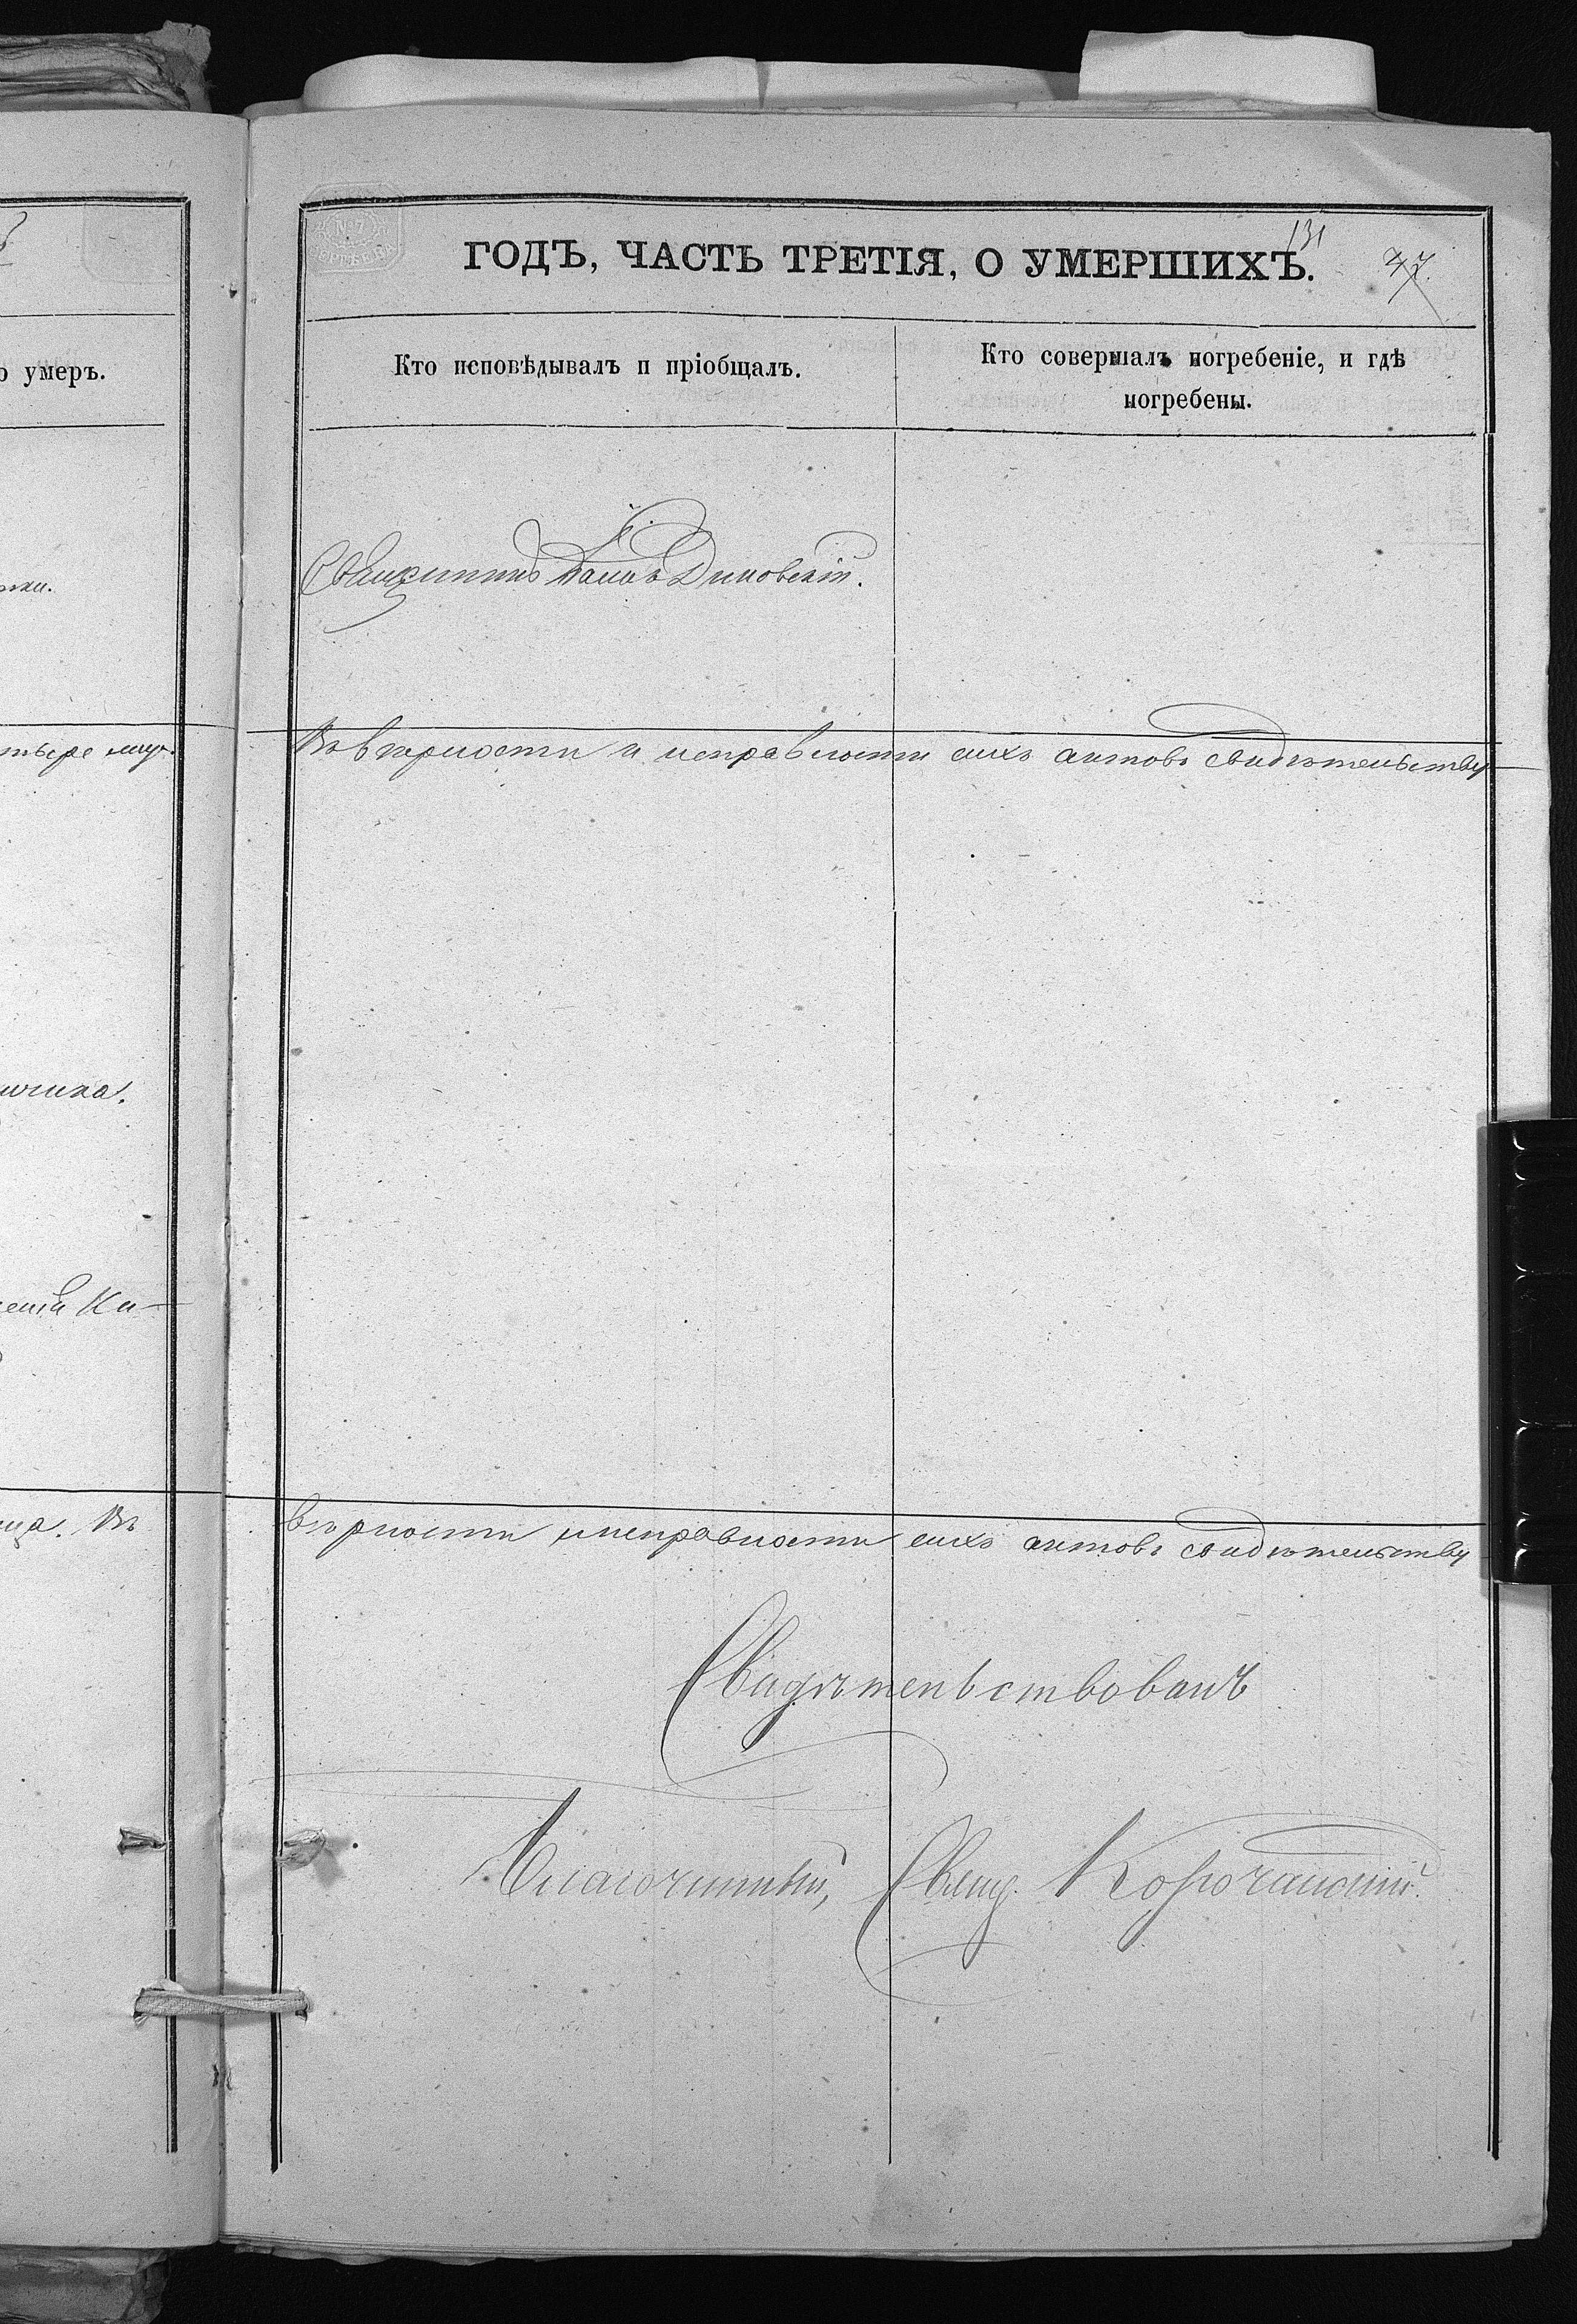 131
47.
ГОДЪ, ЧАСТЬ ТРЕТІЯ, О УМЕРШИХЪ.
о умеръ.
Кто исповѣдывалъ и пріобщалъ.
Кто совершалъ погребеніе, и гдѣ
погребены.
Священникъ Диковскій.
Въ вѣрности и исправности сихъ актовъ свидѣтельству
ца. Въ вѣрности и исправности сихъ актовъ свидѣтельству
Свидѣтельствовалъ
Благочинный, Свящ. Корочанскій.